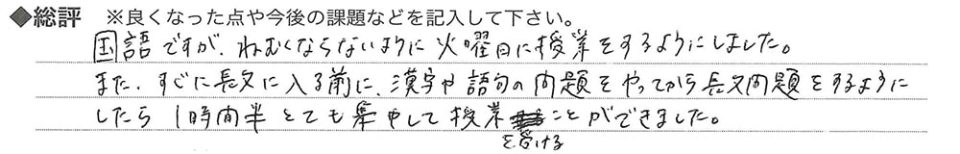 ◆総評 ※良くなった点や今後の課題などを記入して下さい。
国語ですが、ねむくならないように火曜日に授業をするようにしました。
また、すぐに長文に入る前に、漢字や語句の問題をやってから長文問題をするように
したら1時間半とても集中して授業を受けることができました。